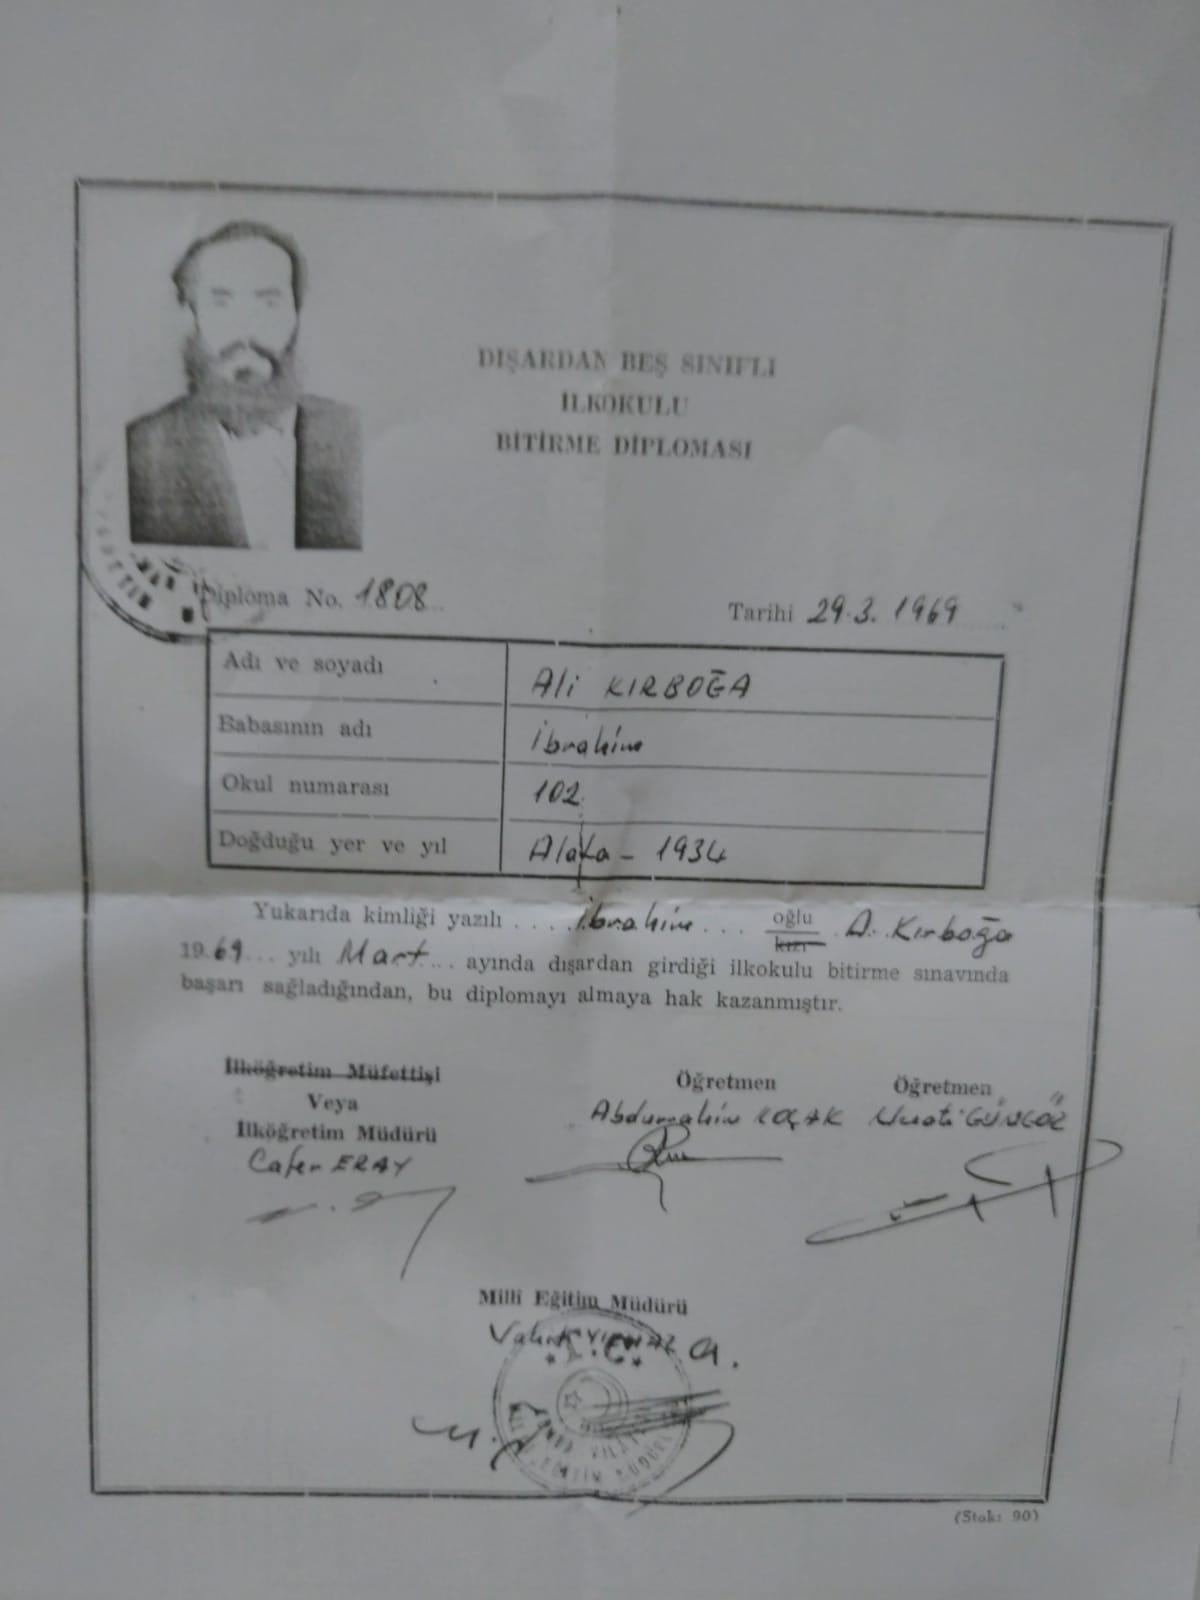 DIŞARDAN BEŞ SINIFLI
İLKOKULU
BİTİRME DİPLOMASI
Diploma No. 1808 Tarihi 29.3.1969
Adı ve soyadı Ali KIRBOĞA
Babasının adı İbrahim
Okul numarası 102
Doğduğu yer ve yıl 1934
Yukarıda kimliği yazılı .... İbrahim ... oğlu kızı A. Kırboğa
1969... yılı Mart... ayında dışardan girdiği ilkokulu bitirme sınavında
başarı sağladığından, bu diplomayı almaya hak kazanmıştır.
İlköğretim Müfettişi Öğretmen Öğretmen
Veya Abdurrahim KOÇAK GÜNGÖR
İlköğretim Müdürü
Cafer ERAY
Millî Eğitim Müdürü
T.C.
(Stok: 90)